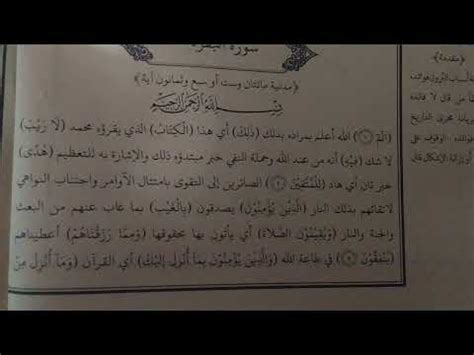 سورة البقرة
﴿مدنية مائتان وست أو سبع وثمانون آية﴾
بسم الله الرحمن الرحيم
(الٓمٓ) ﴿١﴾ الله أعلم بمراده بذلك (ذَلِكَ) أي هذا (الْكِتَابُ) الذي يقرؤه محمد (لَا رَيْبَ)
لا شك (فِيْهِ) أنه من عند الله وجملة النفي خبر مبتدؤه ذلك والإشارة به للتعظيم (هُدًى)
خبر ثان أي هاد (لِلْمُتَّقِيْنَ) ﴿٢﴾ الصائرين إلى التقوى بامتثال الأوامر واجتناب النواهي
لاتقائهم بذلك النار (الَّذِيْنَ يُؤْمِنُوْنَ) يصدقون (بِالْغَيْبِ) بما غاب عنهم من البعث
والجنة والنار (وَيُقِيْمُوْنَ الصَّلَاةَ) أي يأتون بها بحقوقها (وَمِمَّا رَزَقْنَاهُمْ) أعطيناهم
(يُنْفِقُوْنَ) ﴿٣﴾ في طاعة الله (وَالَّذِيْنَ يُؤْمِنُوْنَ بِمَا أُنْزِلَ إِلَيْكَ) أي القرآن (وَمَا أُنْزِلَ مِنْ
﴿مقدمة﴾
أسباب النزول
من قال لا فائدة
مجرى التاريخ
الوقوف على
أو إزالة الإشكال قال